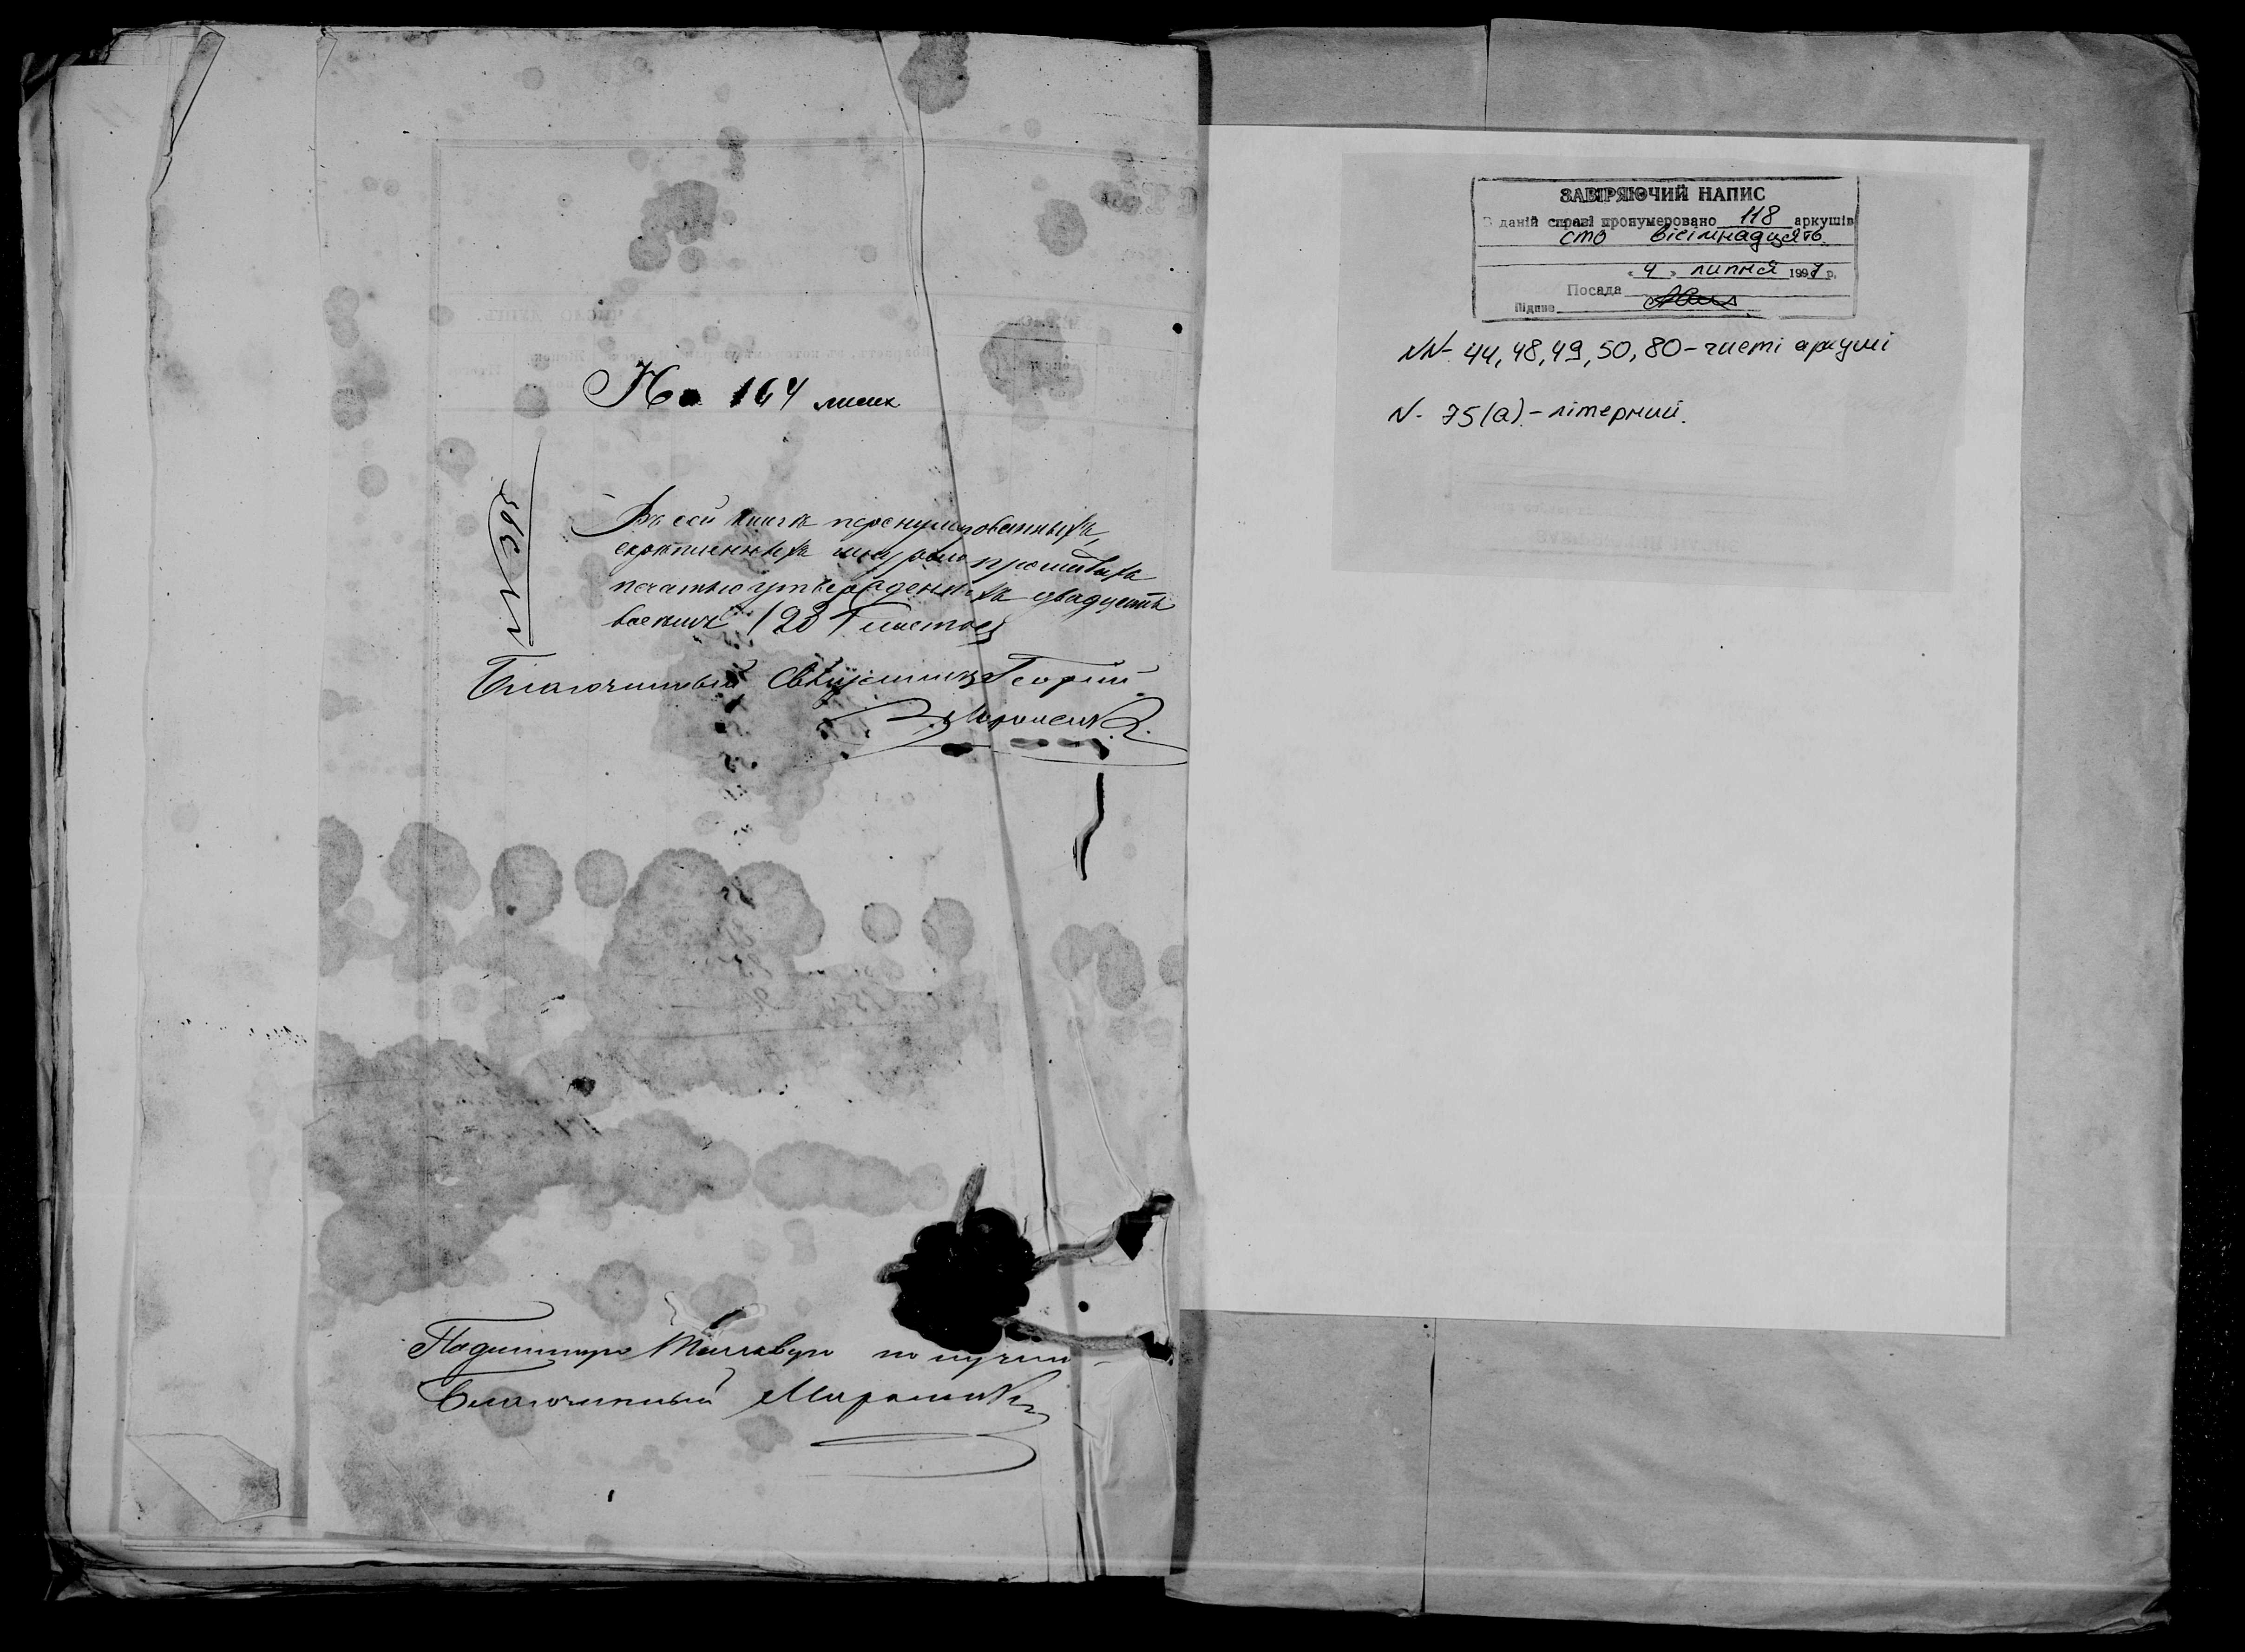 На 164 листѣ
№ 395
Въ сей книгѣ перенумерованныхъ,
скрѣпленныхъ шнуромъ прошитыхъ
печатью утвержденныхъ двадцать
восемь /28/ листовъ
Благочинный Священникъ Георгій
Мирошник
Подлинную тетрадь получил
Благочинный Мирошник
ЗАВІРЯЮЧИЙ НАПИС
В даній справі пронумеровано 118 аркушів
сто вісімнадцять
« 4 » липня 1997 р.
Посада
Підпис
NN- 44, 48, 49, 50, 80 – чисті аркуші
N- 75(а) – літерний.